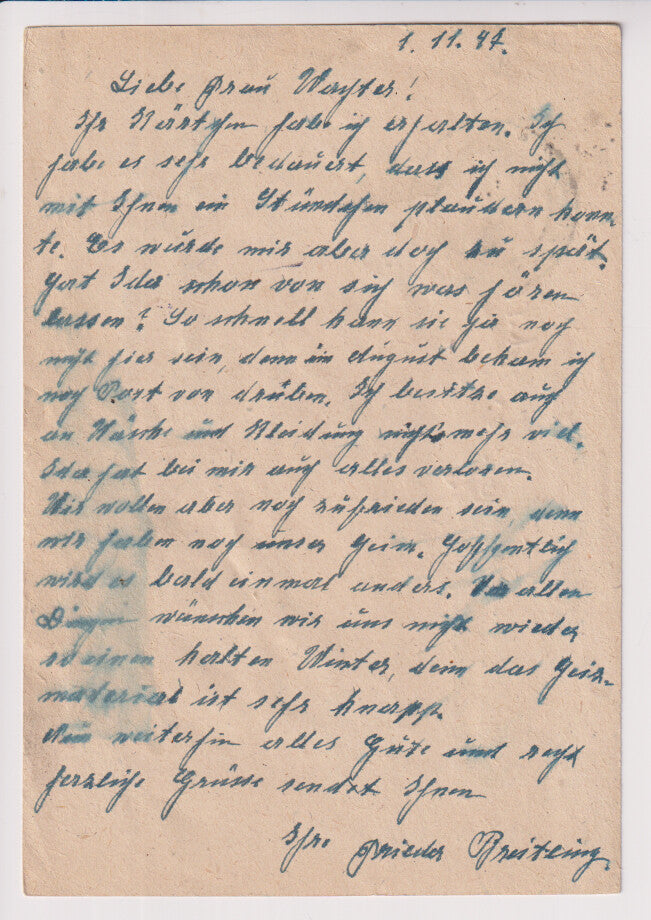 1. 11. 47.
Liebe Frau Wachter!
Ihr Kärtchen habe ich erhalten. Ich
habe es sehr bedauert, dass ich nicht
mit Ihnen ein Stündchen plaudern konn-
te. Es wurde mir aber doch zu spät.
Hat Ida schon von sich was hören
lassen? So schnell kann sie ja noch
nicht hier sein, denn im August bekam ich
noch Post von drüben. Ich besitze auch
an Wäsche und Kleidung nichts mehr viel.
Ida hat bei mir auch alles verloren.
Wir wollen aber noch zufrieden sein, denn
wir haben noch unser Heim. Hoffentlich
wird es bald einmal anders. Vor allen
Dingen wünschen wir uns nicht wieder
so einen kalten Winter, denn das Heiz-
material ist sehr knapp.
Nun weiterhin alles Gute und recht
herzliche Grüsse sendet Ihnen
Ihre Frieda Breitling.